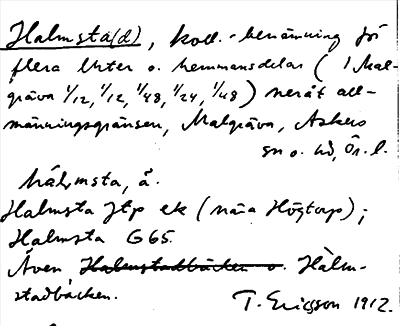 Halmsta(d), koll.-benämning för
flera lhter o. hemmansdelar (i Mal-
gräva 1/12, 1/12, 1/48, 1/24, 1/48) neråt all-
männingsgränsen, Malgräva, Askers
sn o. hd, Ör. l.
hálmsta, å.
Halmsta Jtp ek (nära Högtorp);
Halmsta G65.
Även Halmstadbäcken o. Hàlm-
stadbäcken. T. Ericsson 1912.